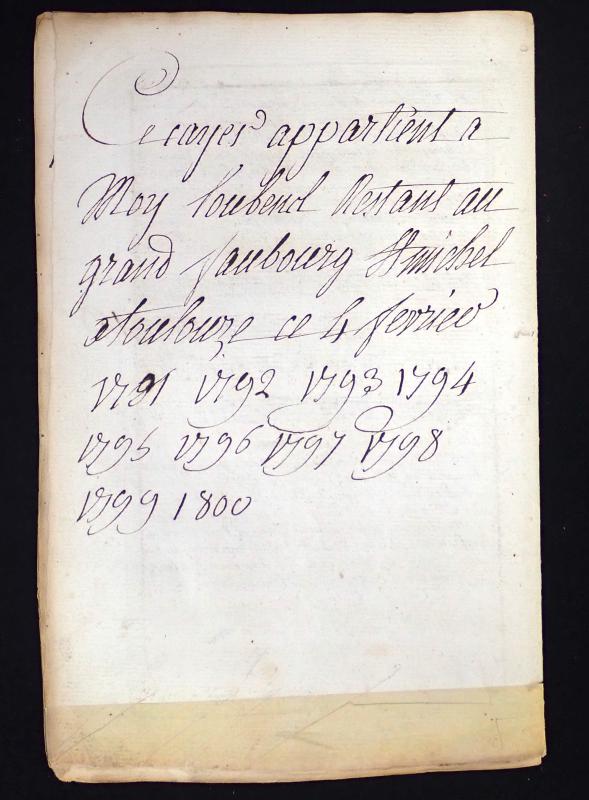 Ce cayer appartient a
Moy Loubend Restant au
grand faubourg St michel
a toulouze ce 4 ferrier
1791 1792 1793 1794
1795 1796 1797 1798
1799 1800